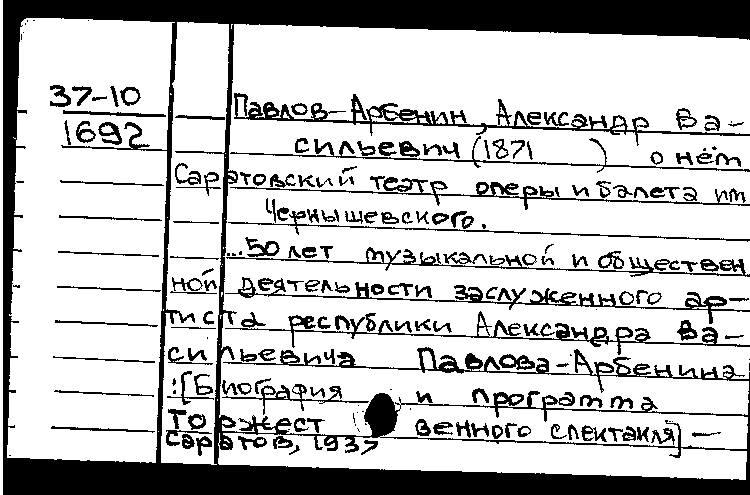 37-10
1692
Павлов-Арбенин, Александр Ва-
сильевич (1871 ) о нём
Саратовский театр оперы и балета им
Чернышевского.
...50 лет музыкальной и обществен
ной деятельности заслуженного ар-
тиста республики Александра Ва-
сильевича Павлова-Арбенина
:[Биография и программа
торжест венного спектакля] —
Саратов, 1937